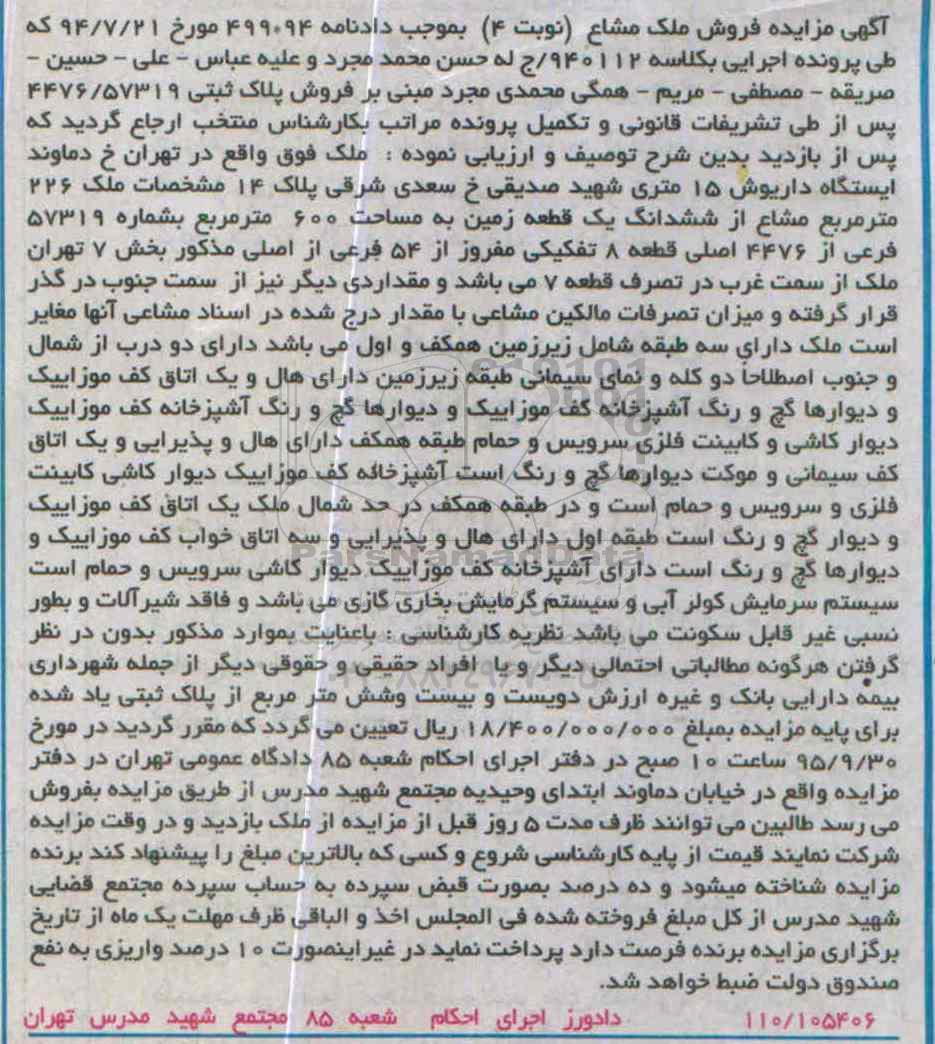 آگهی مزایده فروش ملک مشاع (نوبت ۴) بموجب دادنامه ۴۹۹۰۹۴ مورخ ۹۴/۷/۲۱ که
طی پرونده اجرایی بکلاسه ۹۴۰۱۱۲/ج له حسن محمد مجرد و علیه عباس - علی - حسین -
صریقه - مصطفی - مریم - همگی محمدی مجرد مبنی بر فروش پلاک ثبتی ۴۴۷۶/۵۷۳۱۹
پس از طی تشریفات قانونی و تکمیل پرونده مراتب بکارشناس منتخب ارجاع گردید که
پس از بازدید بدین شرح توصیف و ارزیابی نموده : ملک فوق واقع در تهران خ دماوند
ایستگاه داریوش ۱۵ متری شهید صدیقی خ سعدی شرقی پلاک ۱۴ مشخصات ملک ۲۲۶
مترمربع مشاع از ششدانگ یک قطعه زمین به مساحت ۶۰۰ مترمربع بشماره ۵۷۳۱۹
فرعی از ۴۴۷۶ اصلی قطعه ۸ تفکیکی مفروز از ۵۴ فرعی از اصلی مذکور بخش ۷ تهران
ملک از سمت غرب در تصرف قطعه ۷ می باشد و مقداردی دیگر نیز از سمت جنوب در گذر
قرار گرفته و میزان تصرفات مالکین مشاعی با مقدار درج شده در اسناد مشاعی آنها مغایر
است ملک دارای سه طبقه شامل زیرزمین همکف و اول می باشد دارای دو درب از شمال
و جنوب اصطلاحاً دو کله و نمای سیمانی طبقه زیرزمین دارای هال و یک اتاق کف موزاییک
و دیوارها گچ و رنگ آشپزخانه کف موزاییک و دیوارها گچ و رنگ آشپزخانه کف موزاییک
دیوار کاشی و کابینت فلزی سرویس و حمام طبقه همکف دارای هال و پذیرایی و یک اتاق
کف سیمانی و موکت دیوارها گچ و رنگ است آشپزخانه کف موزاییک دیوار کاشی کابینت
فلزی و سرویس و حمام است و در طبقه همکف در حد شمال ملک یک اتاق کف موزاییک
و دیوار گچ و رنگ است طبقه اول دارای هال و پذیرایی و سه اتاق خواب کف موزاییک و
دیوارها گچ و رنگ است دارای آشپزخانه کف موزاییک دیوار کاشی سرویس و حمام است
سیستم سرمایش کولر آبی و سیستم گرمایش بخاری گازی می باشد و فاقد شیرآلات و بطور
نسبی غیر قابل سکونت می باشد نظریه کارشناسی : باعنایت بموارد مذکور بدون در نظر
گرفتن هرگونه مطالباتی احتمالی دیگر و یا افراد حقیقی و حقوقی دیگر از جمله شهرداری
بیمه دارایی بانک و غیره ارزش دویست و بیست وشش متر مربع از پلاک ثبتی یاد شده
برای پایه مزایده بمبلغ ۱۸/۴۰۰/۰۰۰/۰۰۰ ریال تعیین می گردد که مقرر گردید در مورخ
۹۵/۹/۳۰ ساعت ۱۰ صبح در دفتر اجرای احکام شعبه ۸۵ دادگاه عمومی تهران در دفتر
مزایده واقع در خیابان دماوند ابتدای وحیدیه مجتمع شهید مدرس از طریق مزایده بفروش
می رسد طالبین می توانند ظرف مدت ۵ روز قبل از مزایده از ملک بازدید و در وقت مزایده
شرکت نمایند قیمت از پایه کارشناسی شروع و کسی که بالاترین مبلغ را پیشنهاد کند برنده
مزایده شناخته میشود و ده درصد بصورت قبض سپرده به حساب سپرده مجتمع قضایی
شهید مدرس از کل مبلغ فروخته شده فی المجلس اخذ و الباقی ظرف مهلت یک ماه از تاریخ
برگزاری مزایده برنده فرصت دارد پرداخت نماید در غیراینصورت ۱۰ درصد واریزی به نفع
صندوق دولت ضبط خواهد شد.
۱۱۰/۱۰۵۴۰۶ دادورز اجرای احکام شعبه ۸۵ مجتمع شهید مدرس تهران
ParsNamadData